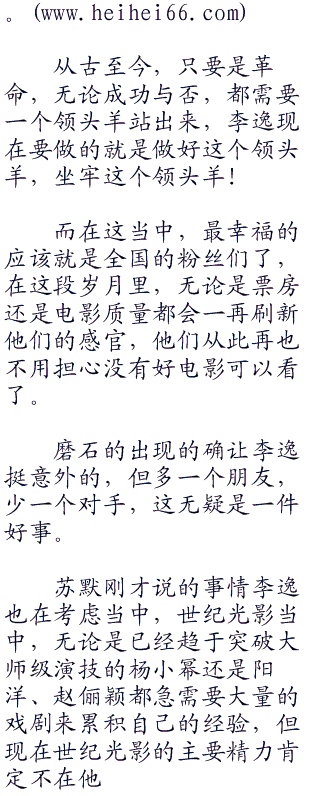 。(www.heihei66.com)
从古至今，只要是革
命，无论成功与否，都需要
一个领头羊站出来，李逸现
在要做的就是做好这个领头
羊，坐牢这个领头羊！
而在这当中，最幸福的
应该就是全国的粉丝们了，
在这段岁月里，无论是票房
还是电影质量都会一再刷新
他们的感官，他们从此再也
不用担心没有好电影可以看
了。
磨石的出现的确让李逸
挺意外的，但多一个朋友，
少一个对手，这无疑是一件
好事。
苏默刚才说的事情李逸
也在考虑当中，世纪光影当
中，无论是已经趋于突破大
师级演技的杨小幂还是阳
洋、赵俪颖都急需要大量的
戏剧来累积自己的经验，但
现在世纪光影的主要精力肯
定不在他